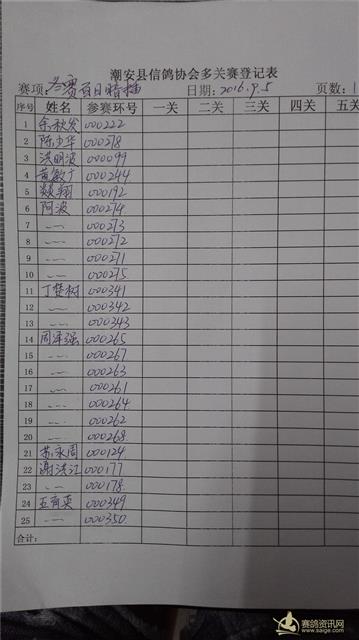 潮安县信鸽协会多关赛登记表
赛项: 冬赛百日精插 日期: 2016.9.5 页数: 1
序号 姓名 参赛环号 一关 二关 三关 四关 五关
1 余秋发 000222
2 陈少华 000278
3 洪明波 000099
4 黄敏广 000244
5 燚翔 000192
6 阿波 000274
7 〃 000273
8 〃 000272
9 〃 000271
10 〃 000275
11 丁楚树 000341
12 〃 000342
13 〃 000343
14 周泽强 000265
15 〃 000267
16 〃 000263
17 〃 000261
18 〃 000264
19 〃 000262
20 〃 000268
21 苏永周 000124
22 谢洪江 000177
23 〃 000178
24 000349
25 〃 000350
合计:
赛鸽资讯网
www.saige.com